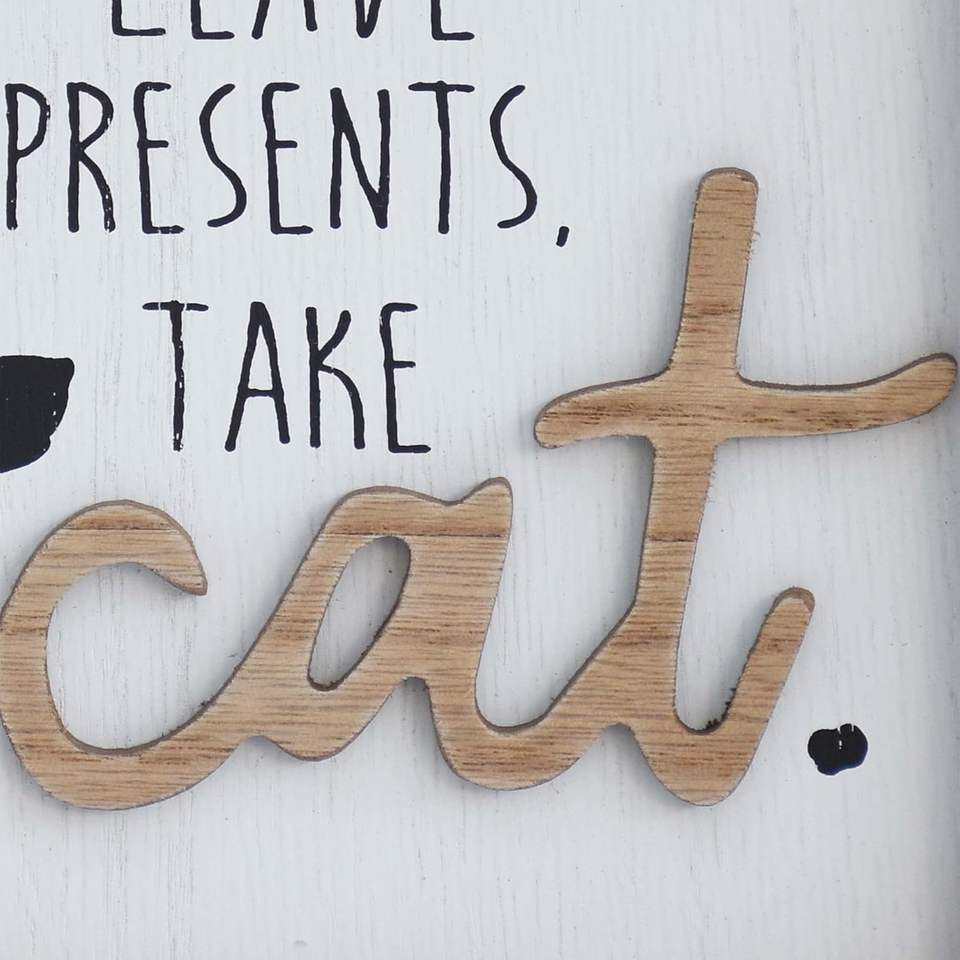 LEAVE
PRESENTS,
TAKE
cat.